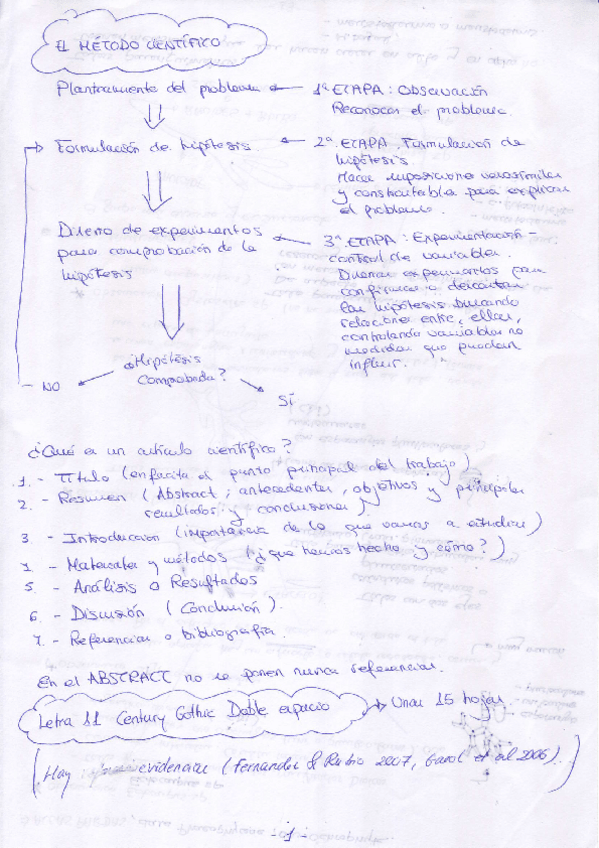 EL MÉTODO CIENTÍFICO
Planteamiento del problema
1ª ETAPA: Observación
Reconocer el problema.
Formulación de hipótesis.
2ª ETAPA. Formulación de
hipótesis.
Hacer suposiciones verosímiles
y contrastables para explicar
el problema.
Diseño de experimentos
para comprobación de la
hipótesis
3ª ETAPA: Experimentación -
control de variables.
Diseñar experimentos para
confirmar o descartar
las hipótesis buscando
relaciones entre ellas,
controlando variables no
medidas que puedan
influir.
¿Hipótesis
Comprobada?
NO
SÍ
¿Qué es un artículo científico?
1. - Título (enfatiza el punto principal del trabajo)
2. - Resumen (Abstract; antecedentes, objetivos y principales
resultados y conclusiones)
3. - Introducción (importancia de lo que vamos a estudiar)
- Materiales y métodos (¿qué hemos hecho y cómo?)
5. - Análisis o Resultados
6. - Discusión (Conclusión).
7. - Referencias o bibliografía.
En el ABSTRACT no se ponen nunca referencias.
Letra 11 Century Gothic Doble espacio
Unas 15 hojas
(Hay evidencias (Fernandez & Rubio 2007, et al 2006).)
- 1 -